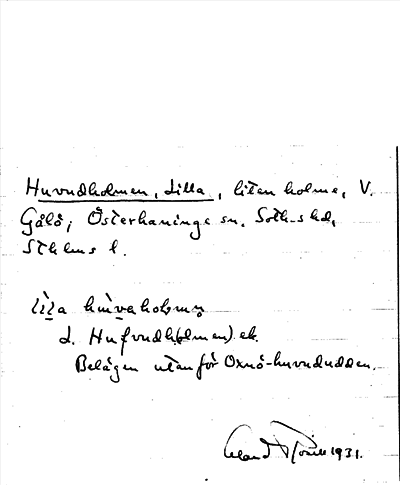 Huvudholmen, Lilla, liten holme, V.
Gålö, Österhaninge sn. Soth-s hd,
Sthlms l.
lilla huvaholmen
L. Hufvudh(olmen) ek.
Belägen utanför Oxnö-huvududden.
1931.